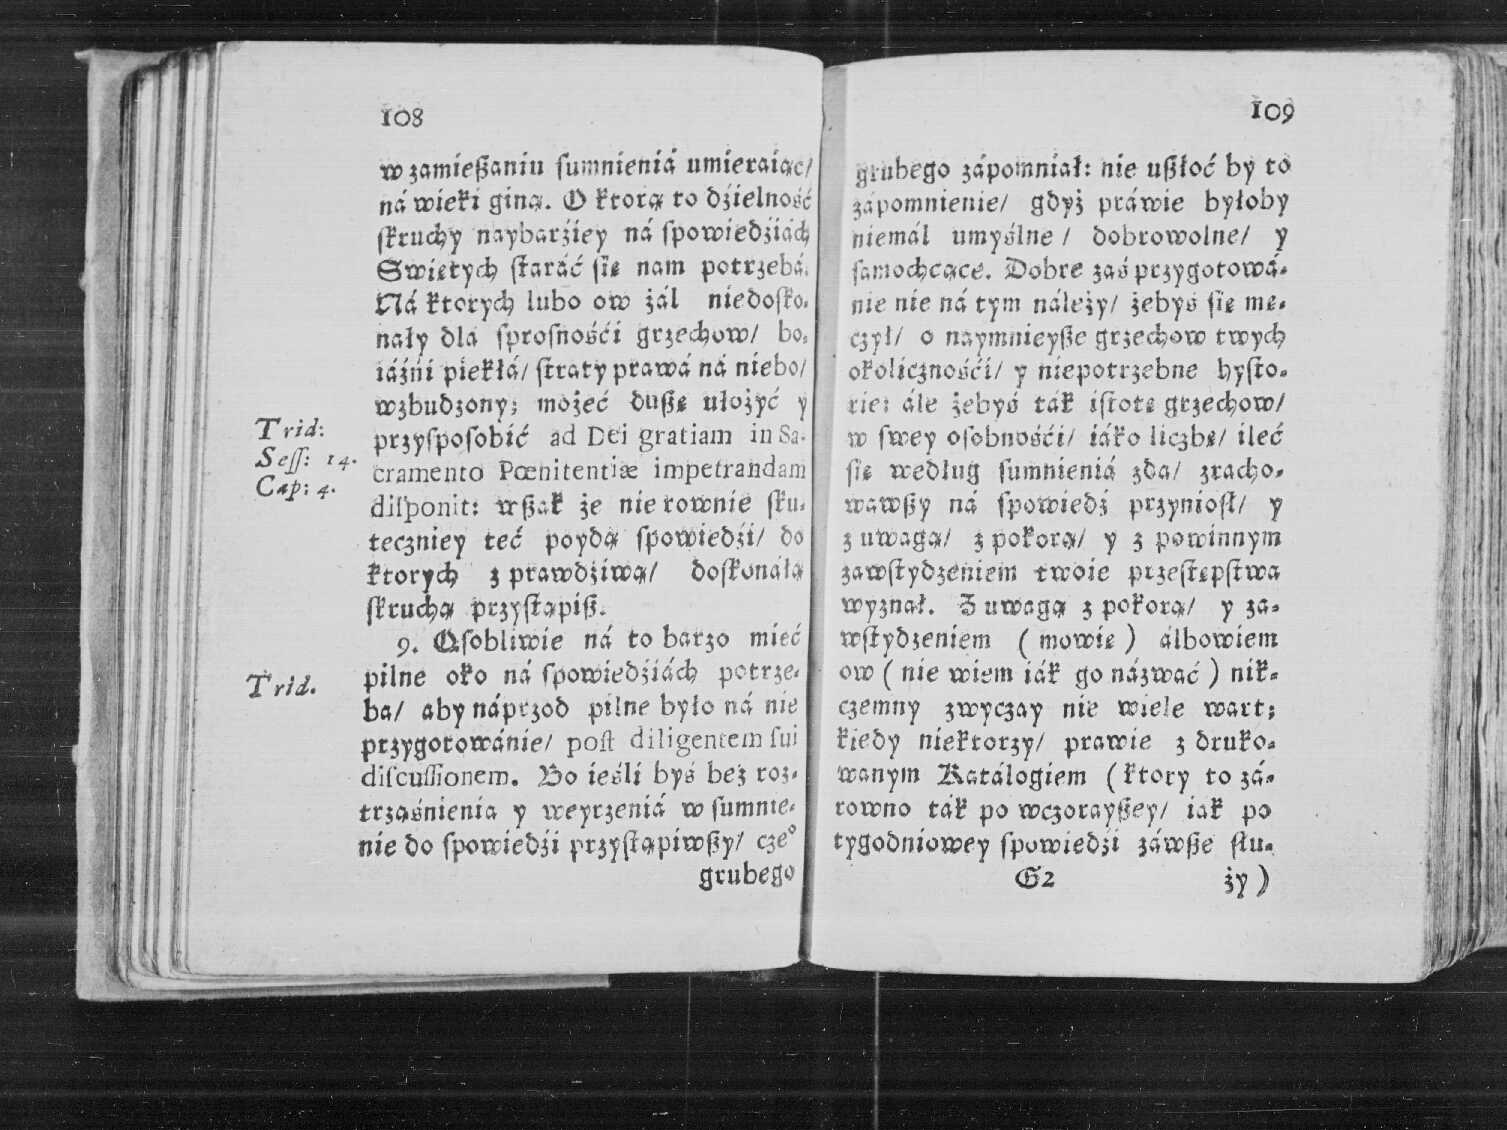 108
w zamießaniu sumnieniá umieraiąc/
ná wieki giną. O ktorą to dźielność
skruchy naybarźiey ná spowiedźiách
Swiętych stáráć się nam potrzebá.
Ná ktorych lubo ow żál niedosko-
nały dla sprosnośći grzechow/ bo-
iáźni piekłá/ straty prawá ná niebo/
wzbudzony; możeć dußę ułożyć y
Trid:
Sess: 14.
Cap: 4.
przysposobić ad Dei gratiam in Sa-
cramento Pœnitentiæ impetrandam
disponit: wßak że nie rownie sku-
teczniey teć poydą spowiedźi/ do
ktorych z prawdźiwą/ doskonáłą
skruchą przystąpiß.
9. Osobliwie ná to barzo mieć
Trid.
pilne oko ná spowiedźiách potrze-
ba/ aby náprzod pilne było ná nie
przygotowánie/ post diligentem sui
discussionem. Bo ieśli byś bez roz-
trząśnienia y weyrzeniá w sumnie-
nie do spowiedźi przystąpiwßy/ cze°
grubego
109
grubego zápomniał: nie ußłoć by to
zápomnienie/ gdyż práwie byłoby
niemál umyślne/ dobrowolne/ y
samochcące. Dobre zaś przygotowá-
nie nie ná tym náleży/ żebyś się mę-
czył/ o naymnieyße grzechow twych
okolicznośći/ y niepotrzebne hysto-
rie: ále żebyś ták istotę grzechow/
w swey osobnośći/ iáko liczbę/ ileć
się według sumnieniá zda/ zracho-
wawßy ná spowiedź przyniosł/ y
z uwagą/ z pokorą/ y z powinnym
zawstydzeniem twoie przestępstwa
wyznał. Z uwagą z pokorą/ y za-
wstydzeniem (mowię) álbowiem
ow (nie wiem iák go názwać) nik-
czemny zwyczay nie wiele wart;
kiedy niektorzy/ prawie z druko-
wanym Katálogiem (ktory to zá-
rowno ták po wczorayßey/ iak po
tygodniowey spowiedźi záwße słu-
G2
ży)